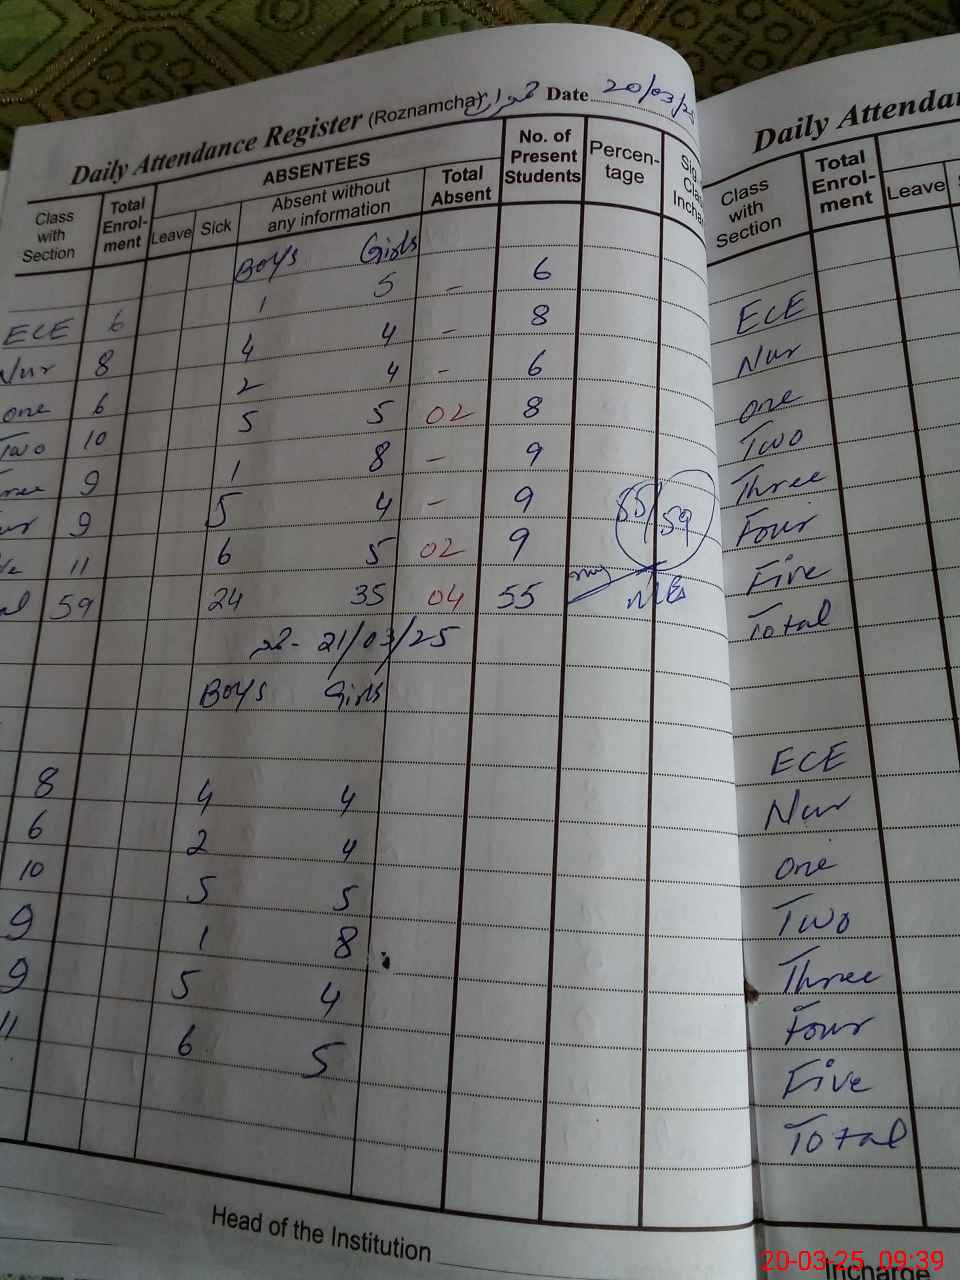 Daily Attendance Register (Roznamcha) جمعرات Date 20/03/25
Class with Section Total Enrol-ment ABSENTEES Leave Sick Absent without any information Total Absent No. of Present Students Percen-tage
Boys Girls
ECE 6 1 5 - 6
Nur 8 4 4 - 8
one 6 2 4 - 6
Two 10 5 5 02 8
9 1 8 - 9
9 5 4 - 9
11 6 5 02 9
59 24 35 04 55
55/59
21/03/25
Boys Girls
8 4 4
6 2 4
10 5 5
9 1 8
9 5 4
11 6 5
Head of the Institution
Daily
Class with Section Total Enrol-ment Leave
ECE
Nur
one
Two
Three
Four
Five
Total
ECE
Nur
one
Two
Three
Four
Five
Total
Incharge
20-03-25 09:39